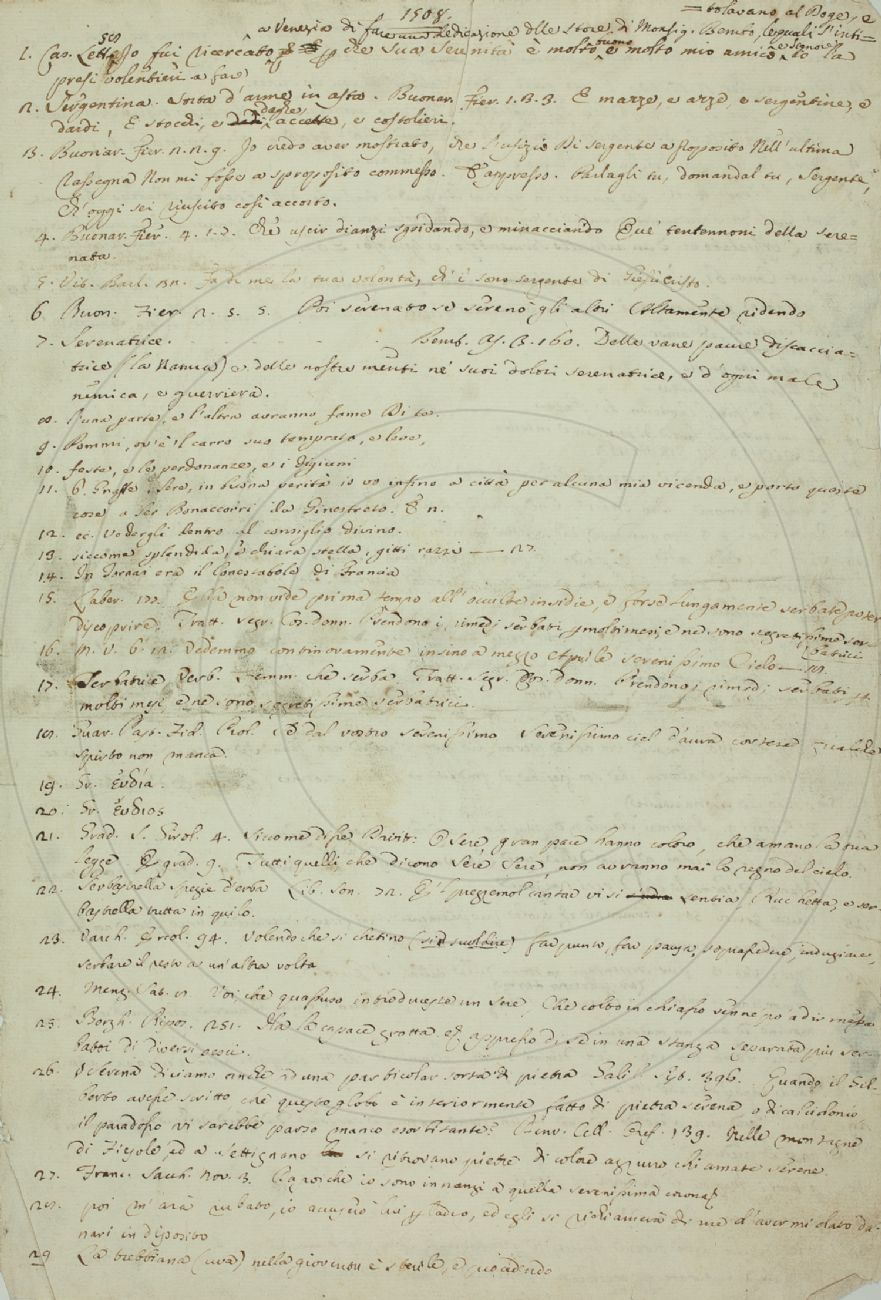 1508.
= tolavano al Doge, e
a Venezia di fare una dedicazione delle storie di Monsig. Bembo, le quali s'inti=
1. Cas. Lett. 50 fui ricercato che sua serenità è molto buono e molto mio amico e signore io la
presi volentieri a fare
2. Sergentina. sorta d'arme in asta. Buonar. Fier. 1. 3. 3. E mazze, e azze, e sergentine, e
dardi, E stocchi, e daghe, accette, e costolieri.
3. Buonar. Fier. 2. 2. 9. Io credo aver mostrato, che l'ufizio Di sergente a sproposito Nell'ultima
rassegna Non mi fosse a sproposito commesso. E appresso. Parlagli tu, domandal tu, sergente,
Ch'oggi sei riuscito così accorto.
4. Buonar. Fier. 4. 1. 7. Ch'è uscir dianzi sgridando, e minacciando Que' tentennoni della sere=
nata.
5. Vit. Barl. 32. Fa di me la tua volontà, ch'i' sono sergente di Giesù Cristo.
6. Buon. Fier. 2. 5. 5. Poi serenato se serenò gli altri Altamente ridendo
7. Serenatrice. Bemb. As. 3. 160. Delle vane paure discaccia=
trice (la Natura) e delle nostre menti ne' suoi dolori serenatrice, e d'ogni male
nimica, e guerriera.
8. L'una parte, e l'altra avranno fame Di te.
9. Pommi, ov'è il carro suo temprato, e leve,
10. feste, e le perdonanze, e i digiuni
11. Gnaffe, sere, in buona verità io vo infino a città per alcuna mia vicenda, e porto queste
cose a Ser Bonaccorri da Ginestreto. E n.
12. ec. vedergli dentro al consiglio divino.
13. siccome splendida, e chiara stella, gitti razzi — 27
14. In Parigi era il Conestabole di Francia
15. non vide prima tempo all'occulte insidie, e forse lungamente serbate poter
discoprire. Tratt. segr. Cos. donn. Prendono i rimedj serbati molti mesi, e ne sono segretissime ser=
batrici
16. M. V. 6. 12. Vedemmo continovamente insino a mezzo Aprile serenissimo Cielo
17. Serbatrice Verb. Femm. che serba. Tratt. Segr. Cos. Donn. Prendono i rimedj serbati p
molti mesi, e ne sono segretissime serbatrici.
18. Guar. Past. Fid. Prol. E dal vostro serenissimo Serenissimo ciel d'aura cortese
spirto non manca.
19. Gr. ἐυδία.
20. Gr. ἔυδιος
21. Grad. S. Girol. 4. Siccome disse David: O Sere, gran pace hanno coloro, che amano la tua
legge E grad. 9. Tutti quelli che dicono Sere Sere, non avranno mai lo regno del cielo.
22. Serbastrella spezie d'erba Lib. Son. 72. E'l prezzemol cantar vi si sentia Ruchetta, e ser=
bastrella tutta in quilo.
23. Varch. Ercol. 94. Volendo che si chetino far punto, far pausa, soprassedere, indugiare,
serbare il resto a un'altra volta
24. Menz. Sat. Voi che quassuso introduceste un Sere, Che colto in chiasso
25. Borgh. Ripos. 251. Ha la capace grotta e appresso di sè in una stanza separata più ser=
batoi di diversi pesci.
26. Serena diciamo anche ad una particolar sorta di pietra Galil. Sist. 396. Quando il Gil=
berto avesse scritto che questo globo è interiormente fatto di pietra serena o di calcidonio
il paradosso vi sarebbe parso manco esorbitante? Benv. Cell. Oref. 139. Nelle montagne
di Fiesole, ed a Settignano si ritrovano pietre di colore azzurro chiamate serene.
27. Franc. Sacch. nov. 3. Ora poichè io sono innanzi a quella serenissima corona
28. poi m'arà rubato, io accuserò lui p ladro, ed egli si richiamerà di me d'avermi dato da=
nari in diposito
29 La trebbiana (uva) nella gioventù è sterile, e